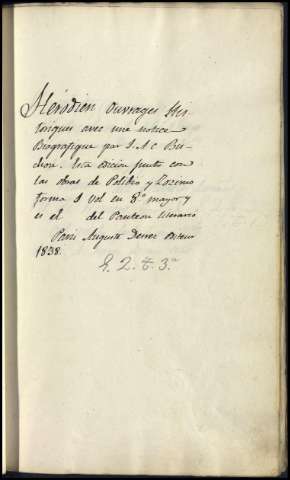 Hérodien ouvrages His-
toriques avec une notice
Biografique par J. A. C. Bu-
chon. Esta edicion junto con
las obras de Polibio y Zosimo
forma 1 vol en 8.º mayor y
es el del Panteon literario
Paris Auguste Desrez Editeur
1838.
E. 2. t. 3.ª